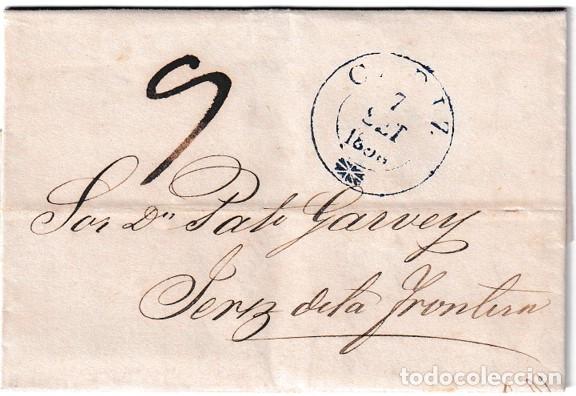 9
CADIZ
7
SET
Sor Dn Pato Garvey
Jerez de la Frontera
todocoleccion